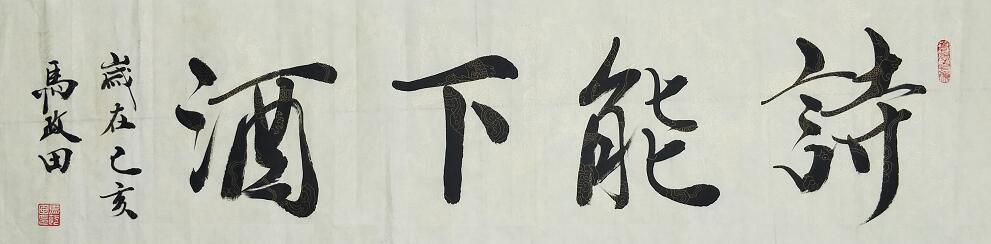 詩能下酒
歲在己亥
馬政田